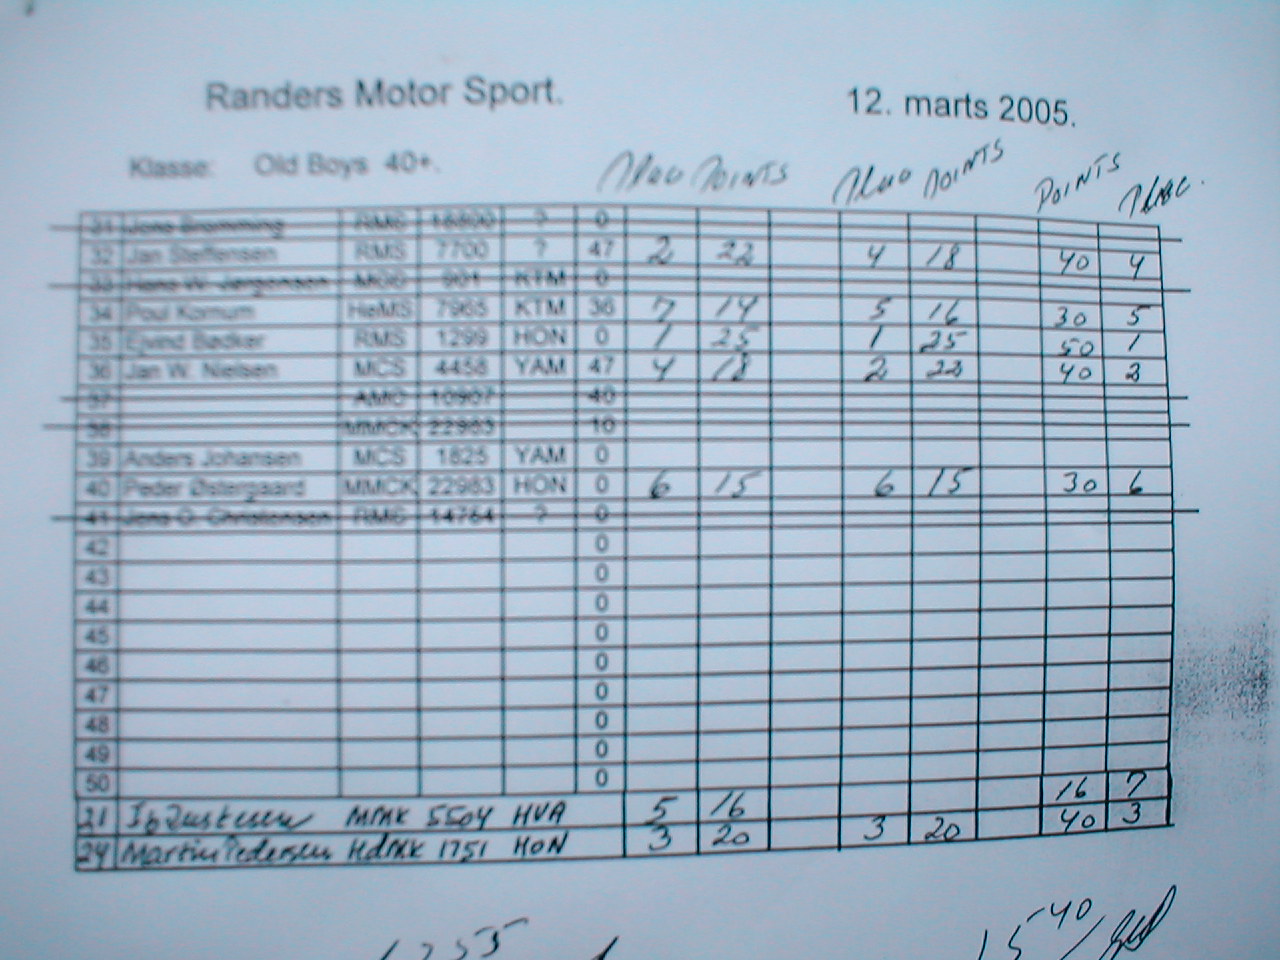 Randers Motor Sport.
12. marts 2005.
Klasse: Old Boys 40+.
Plac Points Plac Points Points Plac.
31 Jens Bromming RMS 18800 ? 0
32 Jan Steffensen RMS 7700 ? 47 2 22 4 18 40 4
33 Hans W. Jørgensen MCC 901 KTM 0
34 Poul Kornum HeMS 7965 KTM 36 7 14 5 16 30 5
35 Ejvind Bødker RMS 1299 HON 0 1 25 1 25 50 1
36 Jan W. Nielsen MCS 4458 YAM 47 4 18 2 22 40 2
37 AMC 10907 40
38 MMCK 22983 10
39 Anders Johansen MCS 1825 YAM 0
40 Peder Østergaard MMCK 22983 HON 0 6 15 6 15 30 6
41 Jens O. Christensen RMS 14764 ? 0
42 0
43 0
44 0
45 0
46 0
47 0
48 0
49 0
50 0
21 Ib 5504 HVA 5 16 16 7
24 Martin Pedersen HdMK 1751 HON 3 20 3 20 40 3
1255
15 40